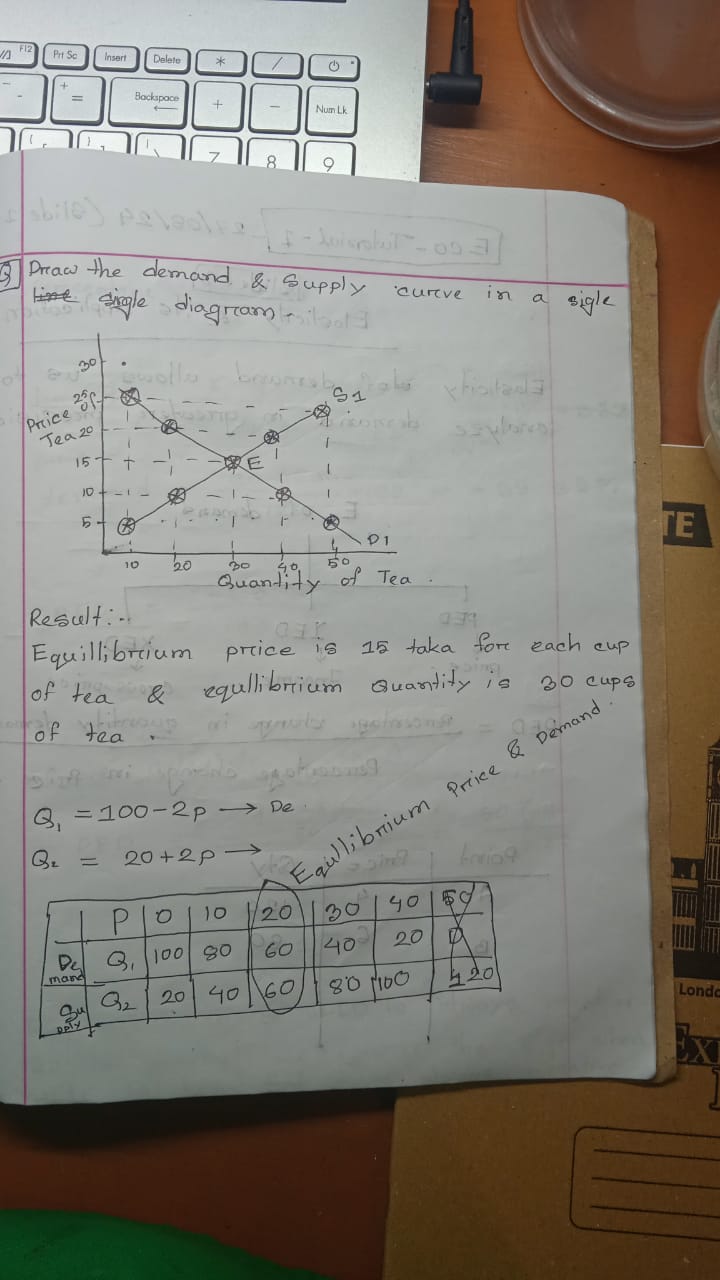 F12
Prt Sc
Insert
Delete
*
/
-
+
=
Backspace
+
-
Num Lk
7
8
9
Q Draw the demand & supply curve in a sigle
line single diagram.
30
25
20
15
10
5
Price of Tea
S1
E
D1
10 20 30 40 50
Quantity of Tea.
Result:-
Equillibrium price is 15 taka for each cup
of tea & equllibrium Quantity is 30 cups
of tea.
Q₁ = 100-2p → De
Q₂ = 20+2p →
Equllibrium Price & Demand.
P 0 10 20 30 40 50
Demand Q₁ 100 80 60 40 20 0
Supply Q₂ 20 40 60 80 100 120
TE
Londo
EX